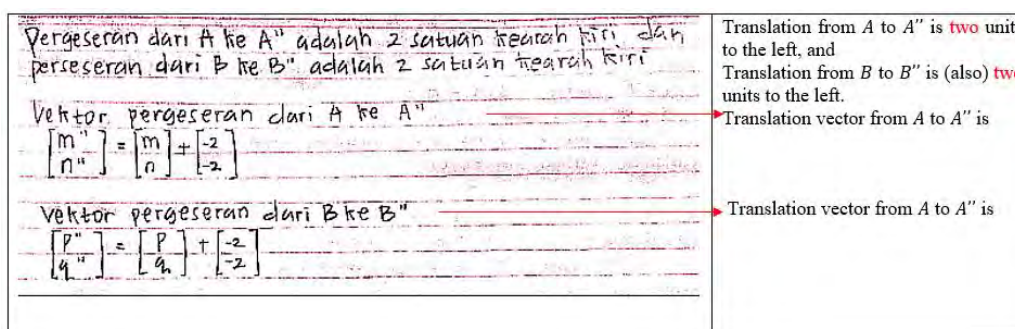 Pergeseran dari A ke A" adalah 2 satuan kearah kiri, dan
perseseran dari B ke B" adalah 2 satuan kearah kiri
Vektor pergeseran dari A ke A"
[m" n"] = [m n] + [-2 -2]
Vektor pergeseran dari B ke B"
[P" q"] = [P q] + [-2 -2]
Translation from A to A″ is two unit
to the left, and
Translation from B to B″ is (also) tw
units to the left.
Translation vector from A to A″ is
Translation vector from A to A″ is